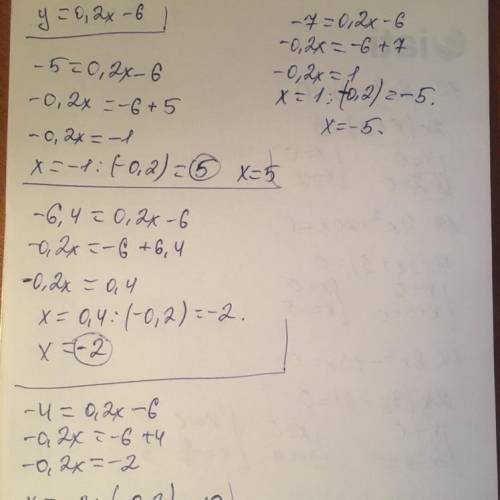 y=0,2x-6
-5=0,2x-6
-0,2x=-6+5
-0,2x=-1
x=-1:(-0,2)=5 x=5
-6,4=0,2x-6
-0,2x=-6+6,4
-0,2x=0,4
x=0,4:(-0,2)=-2.
x=-2
-4=0,2x-6
-0,2x=-6+4
-0,2x=-2
-7=0,2x-6
-0,2x=-6+7
-0,2x=1
x=1:(-0,2)=-5.
x=-5.